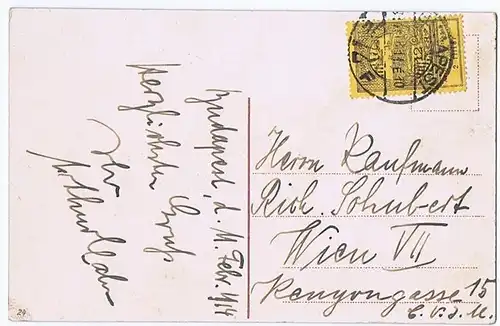 Budapest, d. 11. Febr. 1914
Herzlichste Gruß
Ihr
Herrn Kaufmann
Rich. Schubert
Wien VII
Kenyongasse 15
C. V. J. M.
24